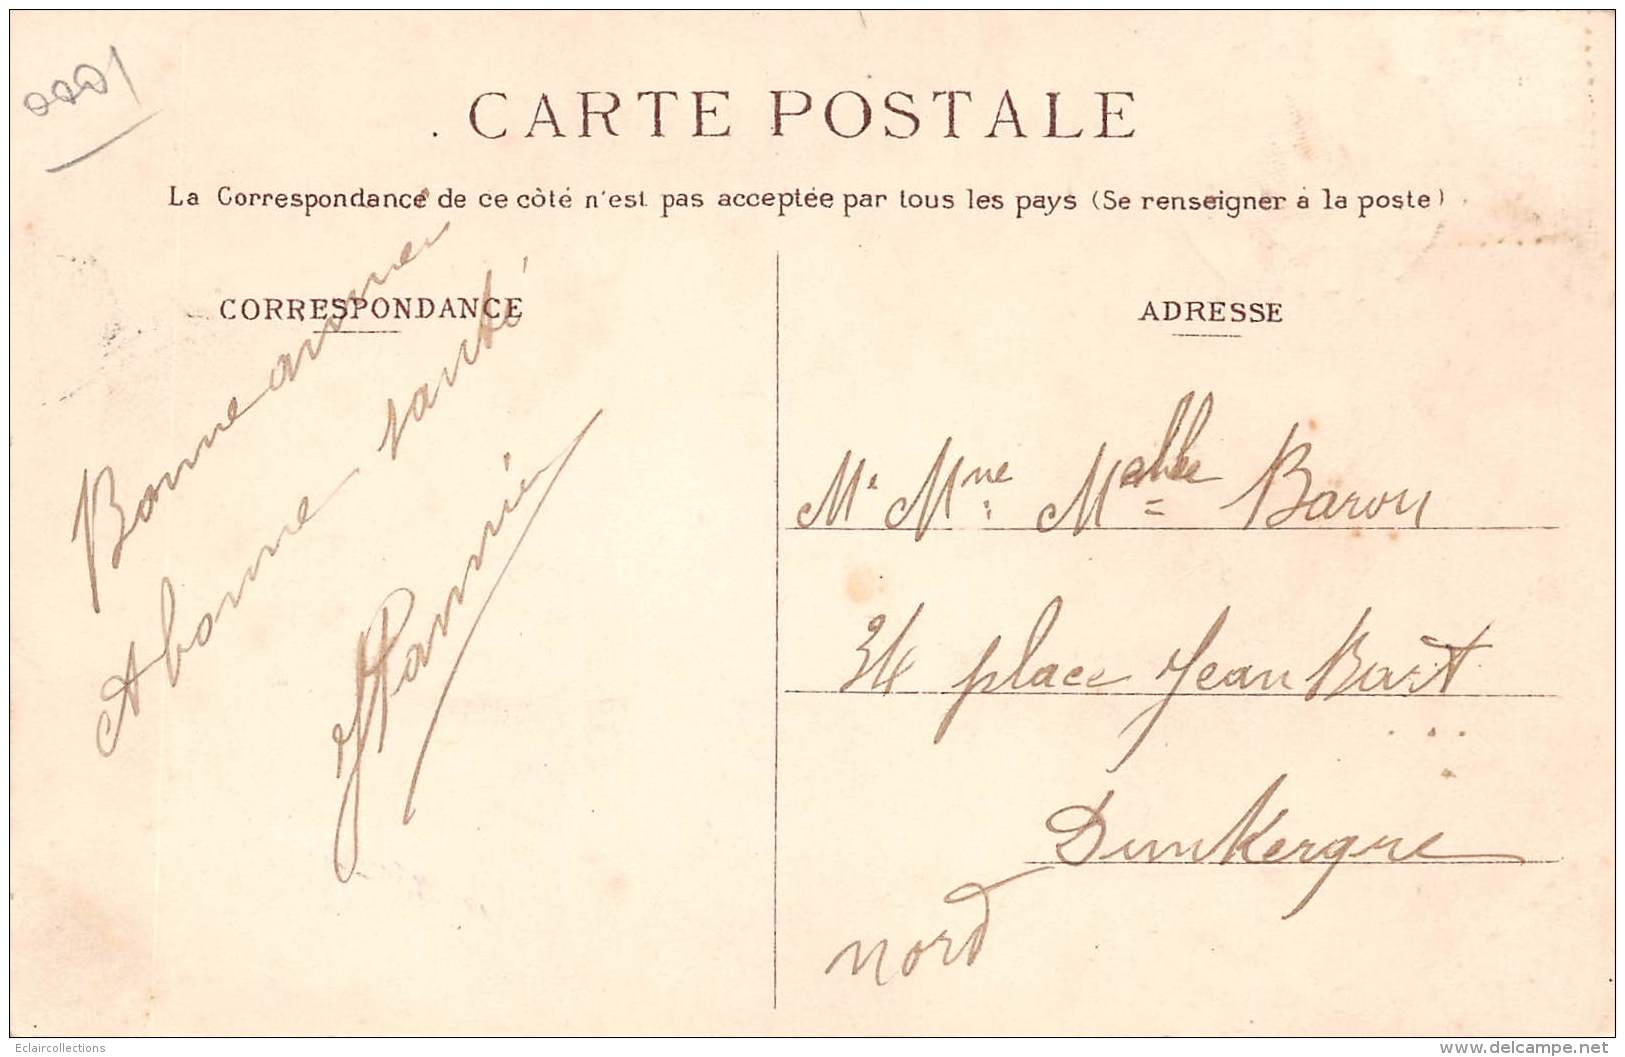 CARTE POSTALE
La Correspondance de ce côté n'est pas acceptée par tous les pays (Se renseigner à la poste)
CORRESPONDANCE
Bonne annee
A bonne santé
ADRESSE
Mr Mme Melle Baron
34 place Jean Bart
Dunkerque
nord
Eclaircollections
www.delcampe.net